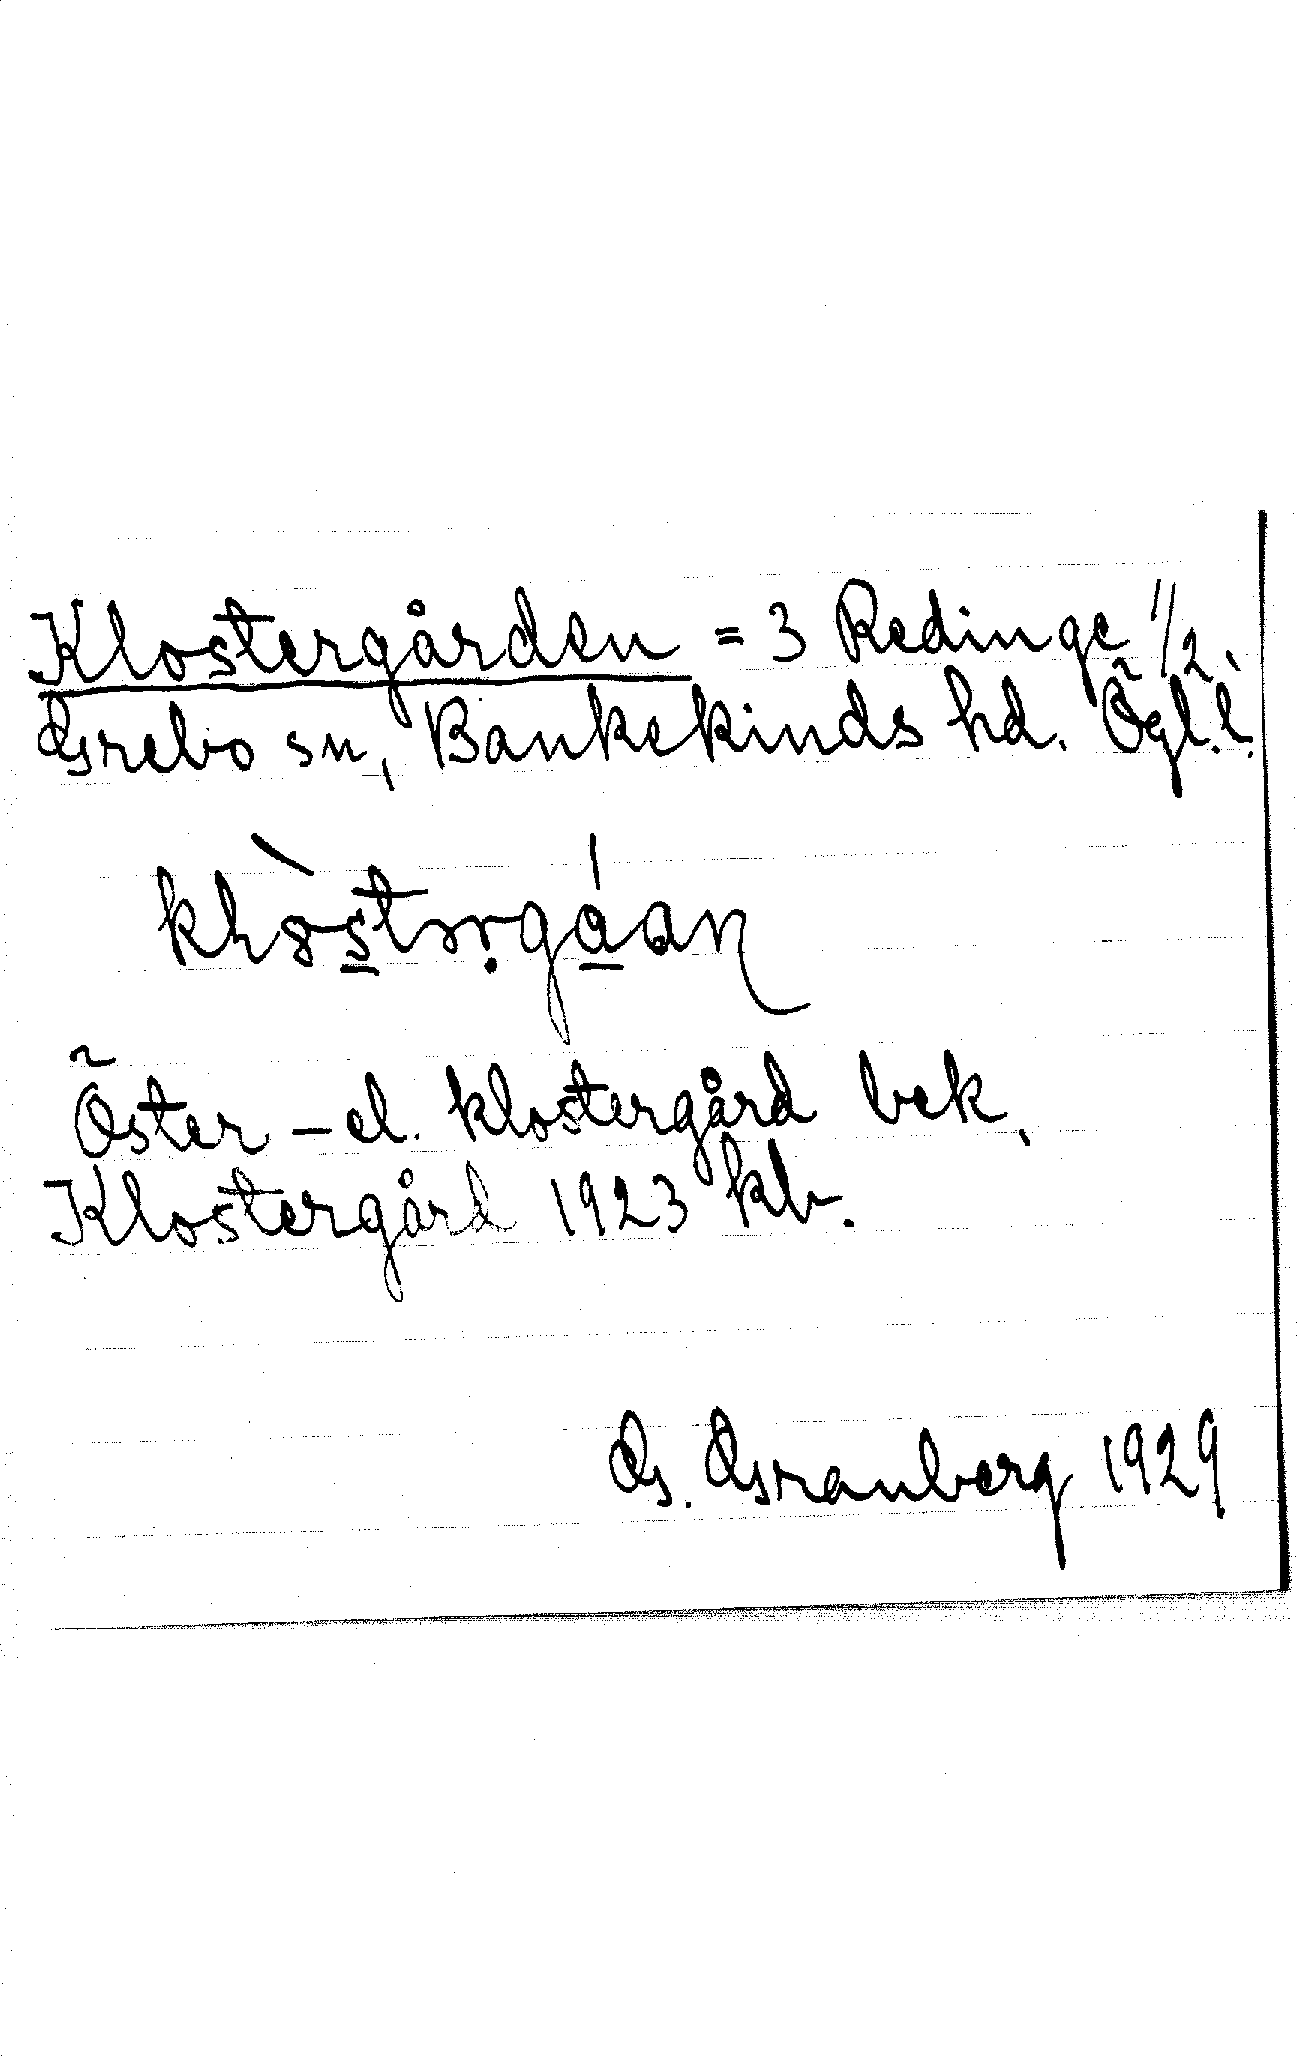 Klostergården = 3 Redinge 1/2.
Grebo sn, Bankekinds hd. Ögl. l.
Öster - el. klostergård bek.
Klostergård 1923 kb.
G. Granberg 1929